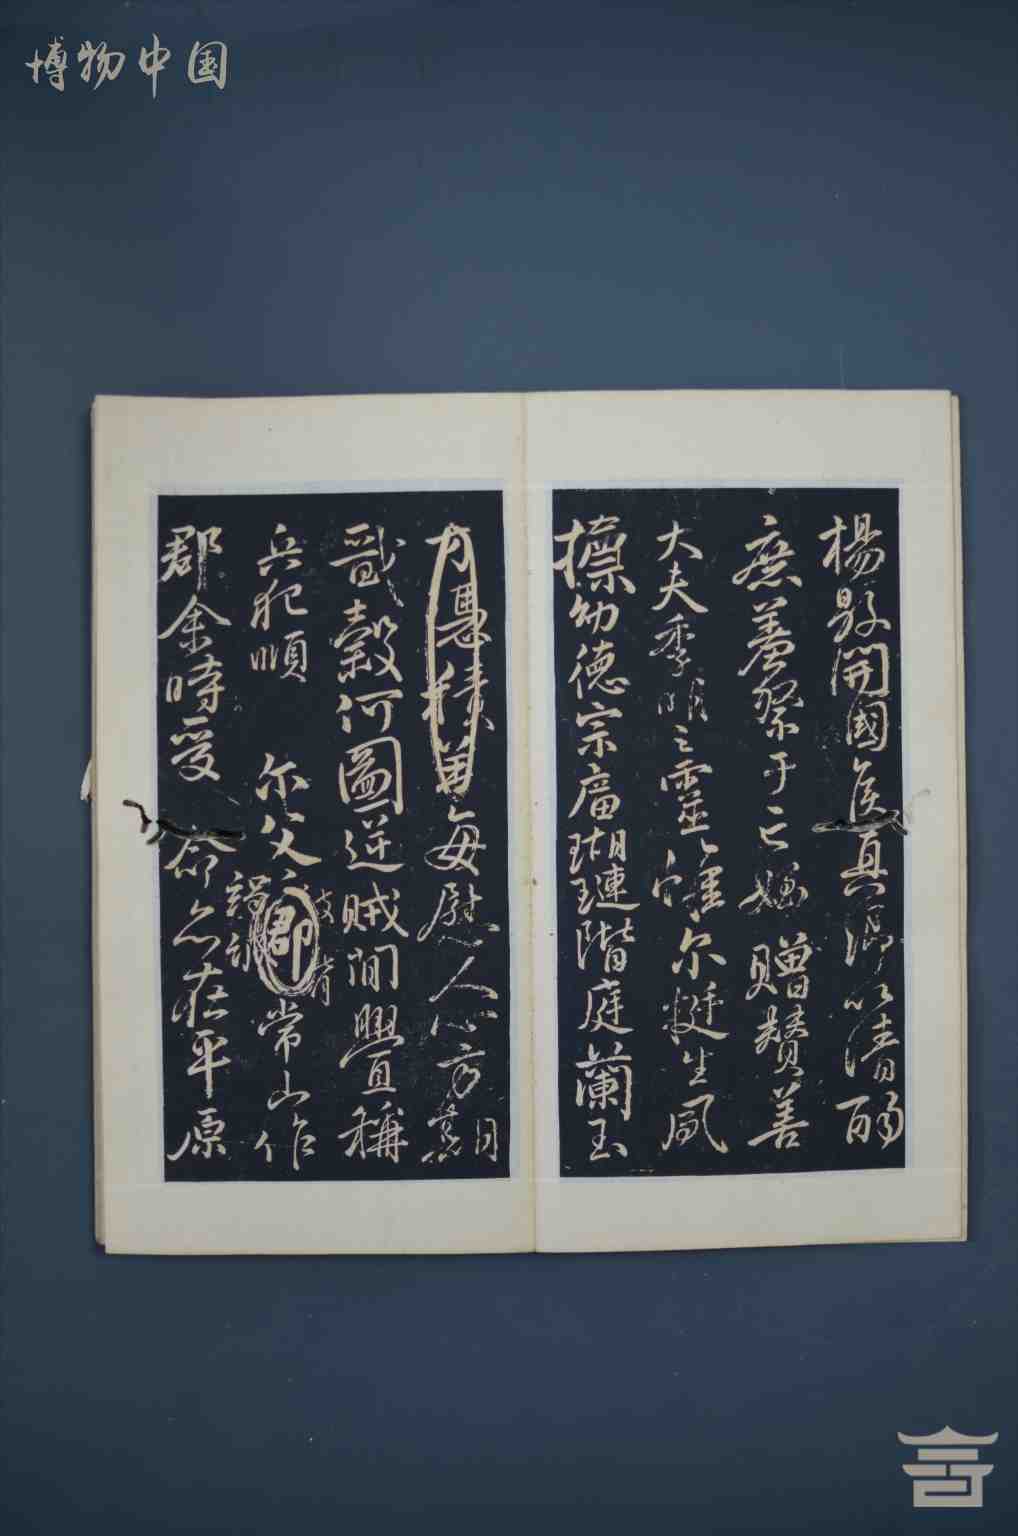 博物中国
楊縣開國侯真卿以清酌
庶羞祭于亡姪贈贊善
大夫季明之靈惟尔挺生夙
標幼德宗廟瑚璉階庭蘭玉
方憑積善每慰人心方期
戩穀何圖逆賊閒釁稱
兵犯順 尔父郡常山作
被脅
竭誠
郡余時受 命亦在平原